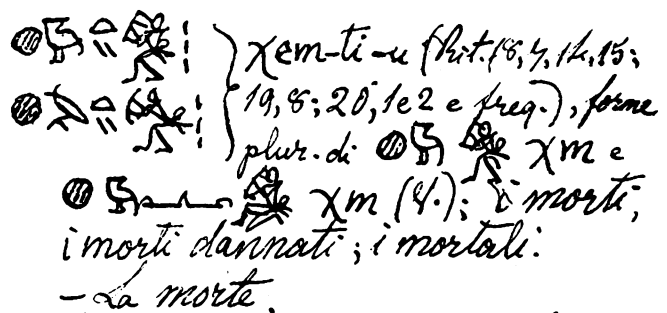 χem-ti-u (Rit. 18, 7, 14, 15;
19, 8; 20, 1 e 2 e freq.), forme
plur. di χm e
χm (V.); i morti,
i morti dannati; i mortali.
- La morte,